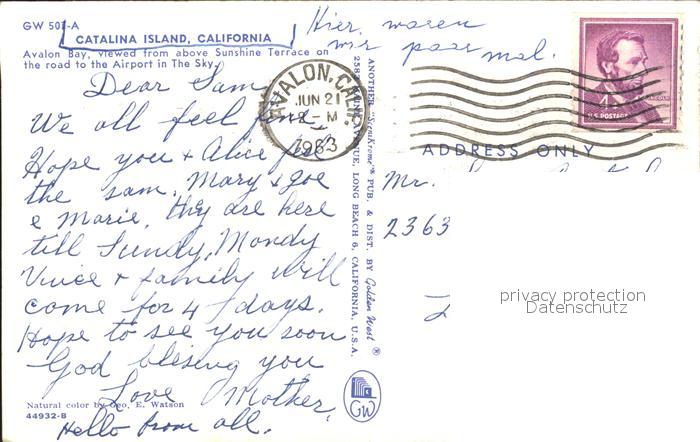 GW 501-A
CATALINA ISLAND, CALIFORNIA
Avalon Bay, viewed from above Sunshine Terrace on
the road to the Airport in The Sky.
Hier waren
wir paar mal.
Dear Sam
We all feel fine.
Hope you & Alice feel
the sam. Mary & Joe
e Marie. they are here
till Sundy, Mondy
Vince & family will
come for 4 days.
Hope to see you soon
God blesing you
Love Mother.
Hello from all.
Natural color by Geo. E. Watson
44932-B
AVALON, CALIF.
JUN 21
-M
1963
ANOTHER "ScenKrome"® PUB. & DIST. BY Golden West®
LONG BEACH 6, CALIFORNIA, U.S.A.
GW
4¢
LINCOLN
U.S. POSTAGE
ADDRESS ONLY
Mr.
2363
privacy protection
Datenschutz